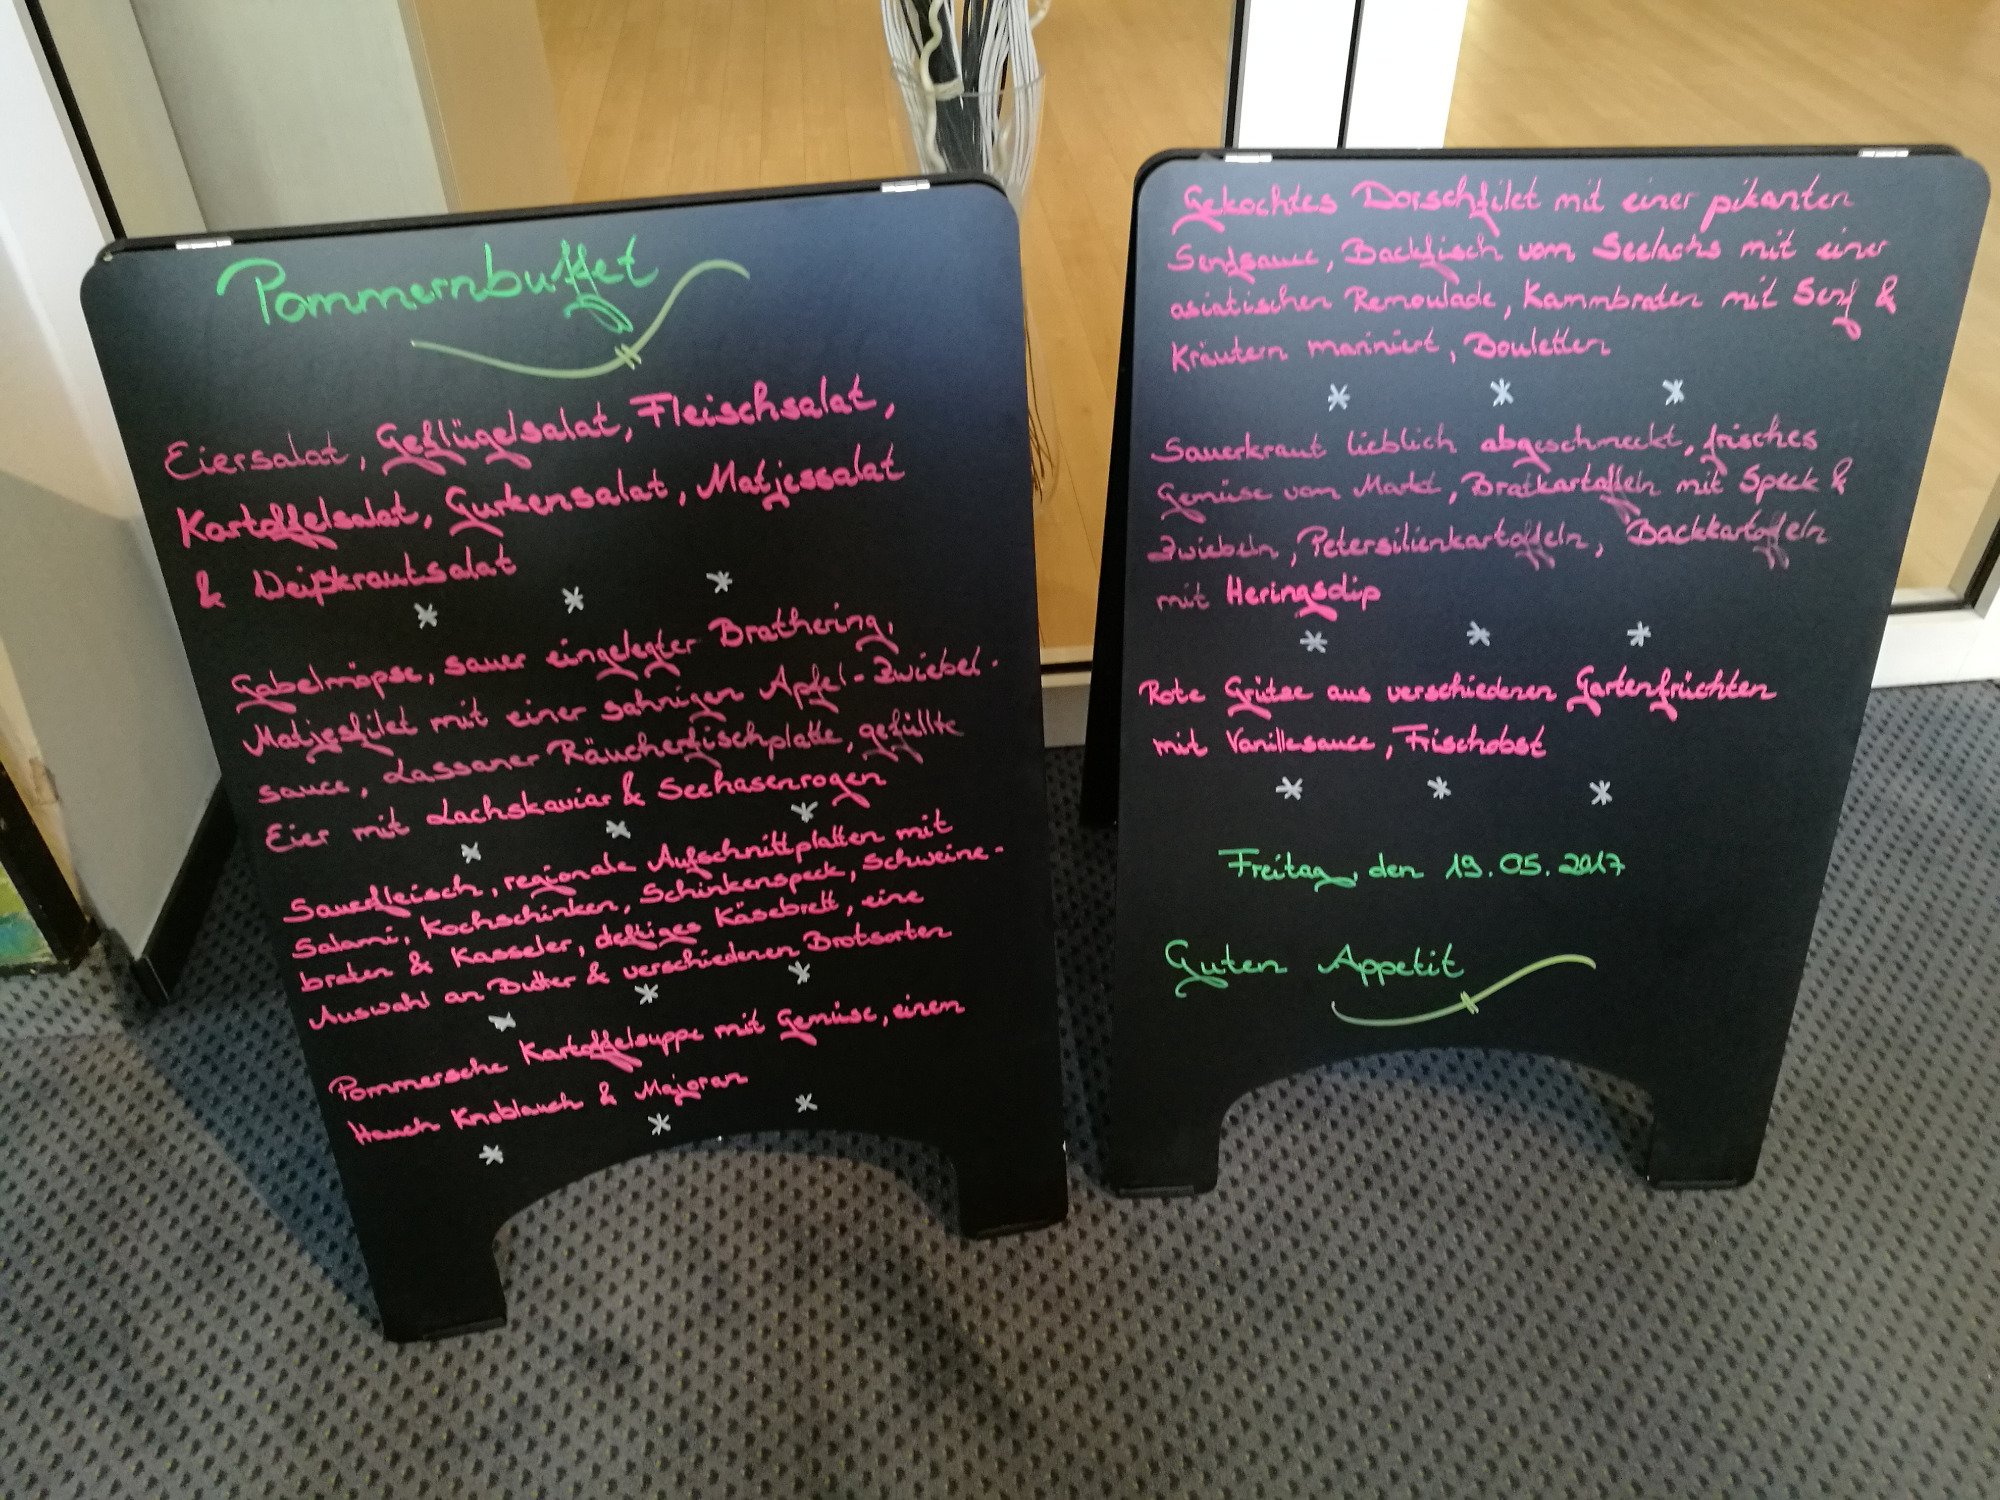 Pommernbuffet
Eiersalat, Geflügelsalat, Fleischsalat,
Kartoffelsalat, Gurkensalat, Matjessalat
& Weißkrautsalat
* * *
Gabelmöpse, sauer eingelegter Brathering,
Matjesfilet mit einer sahnigen Apfel-Zwiebel-
sauce, Lassaner Räucherfischplatte, gefüllte
Eier mit Lachskaviar & Seehasenrogen
* * *
Sauerfleisch, regionale Aufschnittplatten mit
Salami, Kochschinken, Schinkenspeck, Schweine-
braten & Kasseler, deftiges Käsebrett, eine
Auswahl an Butter & verschiedenen Brotsorten
* * *
Pommersche Kartoffelsuppe mit Gemüse, einem
Hauch Knoblauch & Majoran
* * *
Gekochtes Dorschfilet mit einer pikanten
Senfsauce, Backfisch vom Seelachs mit einer
asiatischen Remoulade, Kammbraten mit Senf &
Kräutern mariniert, Bouletten
* * *
Sauerkraut lieblich abgeschmeckt, frisches
Gemüse vom Markt, Bratkartoffeln mit Speck &
Zwiebeln, Petersilienkartoffeln, Backkartoffeln
mit Heringsdip
* * *
Rote Grütze aus verschiedenen Gartenfrüchten
mit Vanillesauce, Frischobst
* * *
Freitag, den 19.05.2017
Guten Appetit